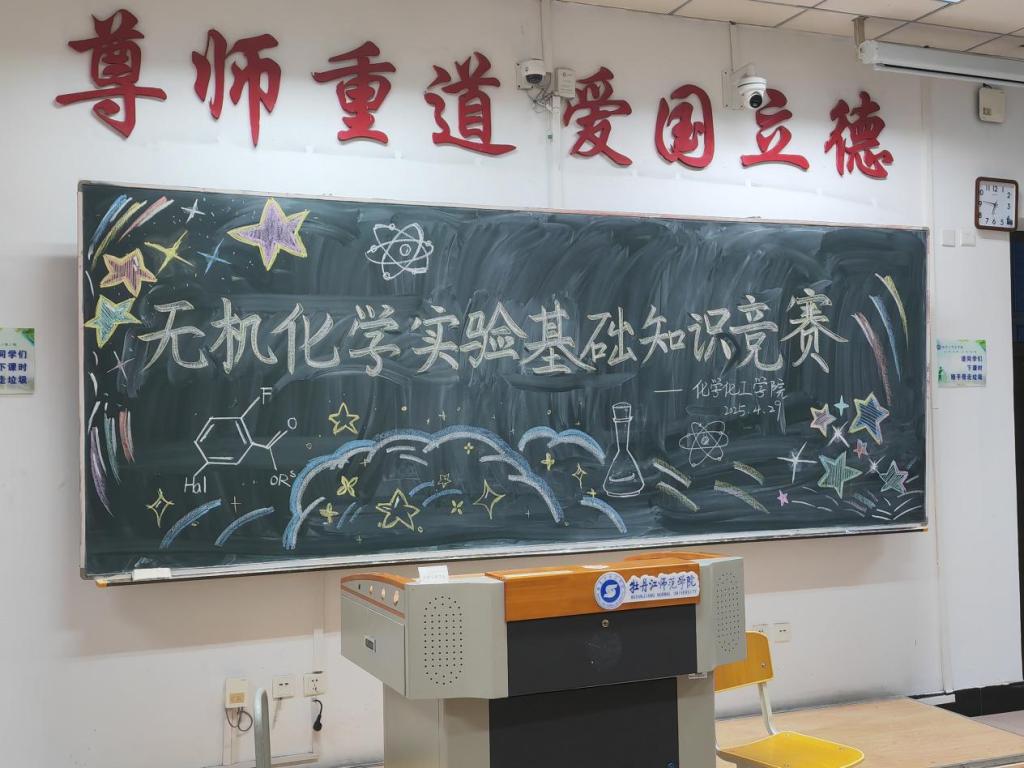 尊师重道爱国立德
无机化学实验基础知识竞赛
— 化学化工学院
2025.4.29
F
O
Hal
OR⁵
同学们
下课时
走垃圾
请同学们
下课时
随手带走垃圾
牡丹江师范学院
MUDANJIANG NORMAL UNIVERSITY